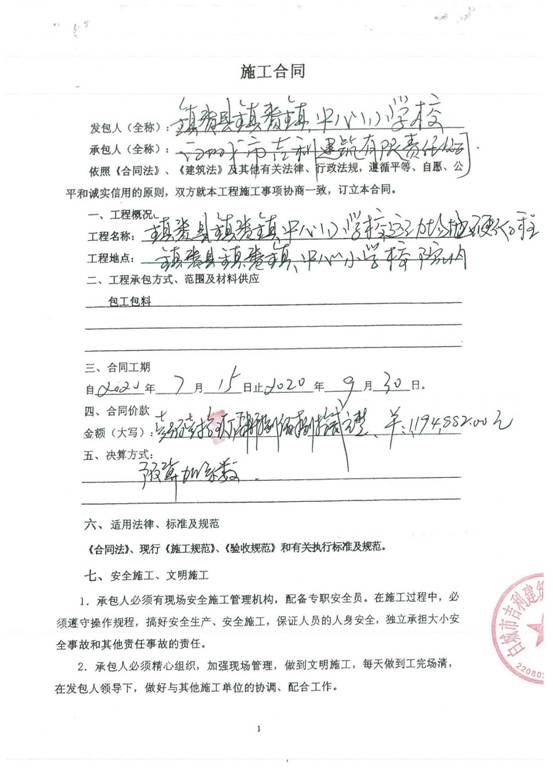 施工合同
发包人（全称）：镇赉县镇赉镇中心小学校
承包人（全称）：白城市吉利建筑有限责任公司
依照《合同法》、《建筑法》及其他有关法律、行政法规，遵循平等、自愿、公
平和诚实信用的原则，双方就本工程施工事项协商一致，订立本合同。
一、工程概况。
工程名称：镇赉县镇赉镇中心小学校运动场地硬化工程
工程地点：镇赉县镇赉镇中心小学校院内
二、工程承包方式、范围及材料供应
包工包料
三、合同工期
自2020年7月15日止2020年9月30日。
四、合同价款
金额（大写）：
1194,882.00元
五、决算方式：
预算加系数.
六、适用法律、标准及规范
《合同法》、现行《施工规范》、《验收规范》和有关执行标准及规范。
七、安全施工、文明施工
1．承包人必须有现场安全施工管理机构，配备专职安全员。在施工过程中，必
须遵守操作规程，搞好安全生产、安全施工，保证人员的人身安全，独立承担大小安
全事故和其他责任事故的责任。
2．承包人必须精心组织，加强现场管理，做到文明施工，每天做到工完场清，
在发包人领导下，做好与其他施工单位的协调、配合工作。
白城市吉利建筑
22080
1